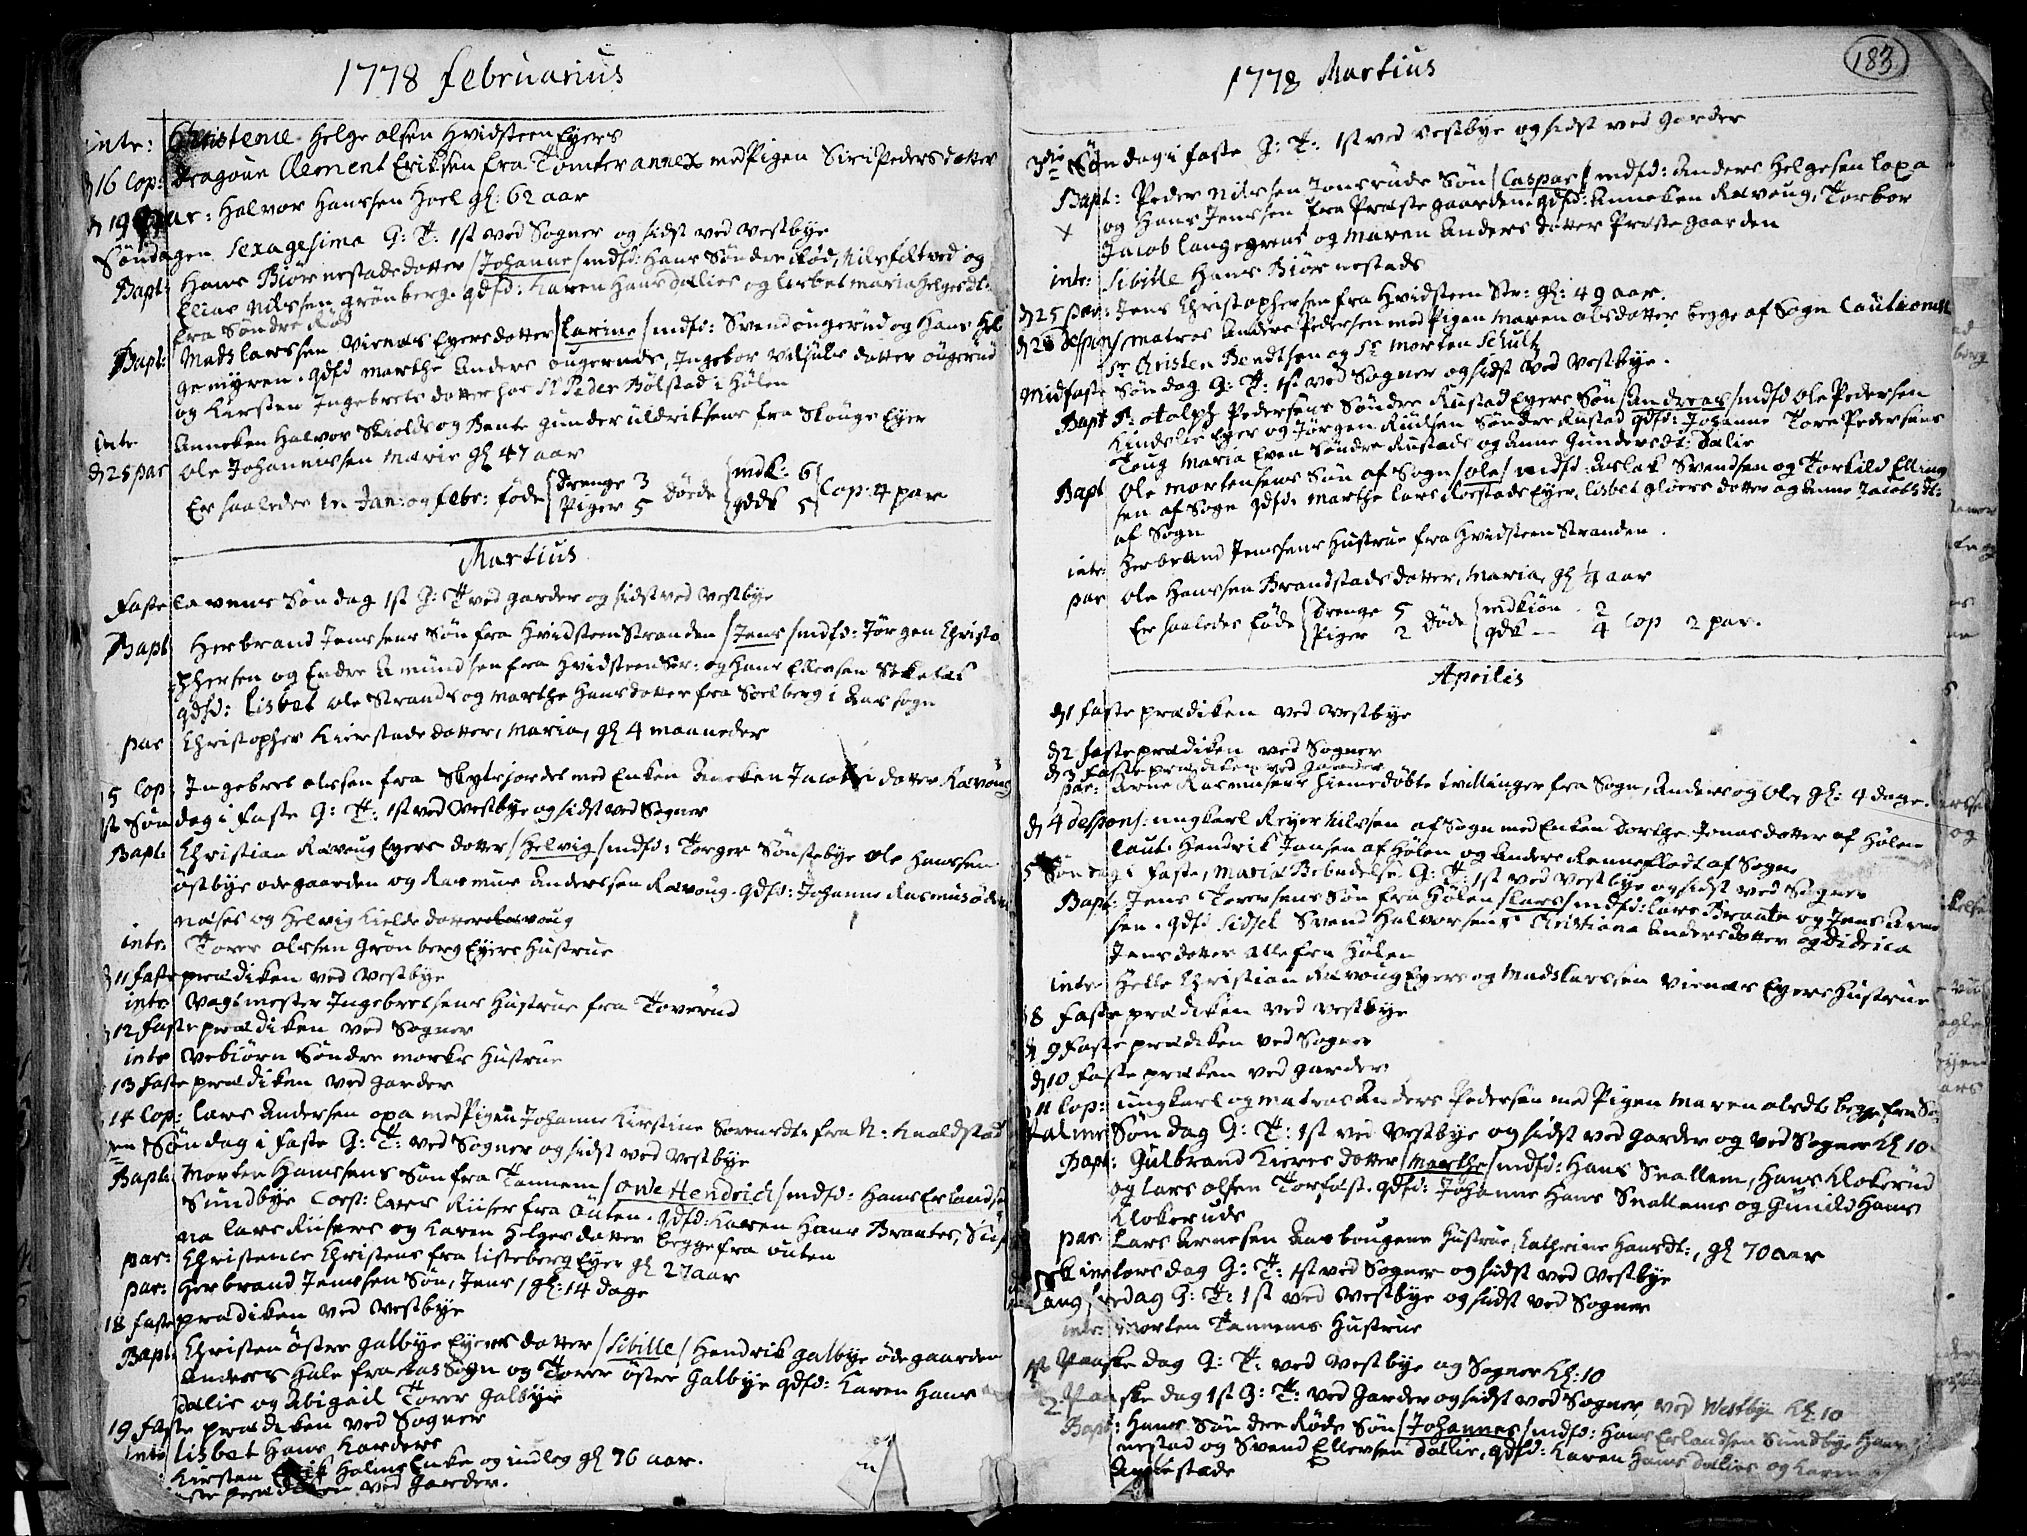 1778 Februarius
inte: Christence Helge Olsen Hvidsteen Eyers
d 16 Cop: Dragoun Clement Eriksen fra Tomter annex med Pigen Siri Peders dotter
d 19 par: Halvor Hanssen Hoel gl: 62 aar
Søndagen Sexagesima G: T: 1st ved Sogner og sidst ved Vestbye
Bapt: Hans Biørnestads dotter /Johanne/ mdfd: Hans Søndre Rød, Nils Feltved og
Elias Nilssen Grønberg. qdfd: Karen Hans Dalies og Lisbet Maria Helgesdt:
fra Søndre Rød
Bapt: Mads Larssen Viernæs Eyers dotter /Karine/ mdfd: Svend Ougerud og Hans Hel
gemyren. qdfd Marthe Anders Ougeruds, Ingebor dotter Ougerud
og Kirsten Ingebrets dotter hos Sr Peder Bølstad i Hølen
inte Anneken Halvor Skiolds og Bente Gunder Uldriksens fra Skouge Eyer
d 28 par Ole Johannessen Marie gl 47 aar
Er saaledes in Jan: og Febr: føde {Drenge 3 Piger 5 Døde {mdk: 6 qdk 5} Cop: 4 par
Martius
Fastelavens Søndag 1st G: T: ved Garder og sidst ved Vestbye
Bapt Herbrand Jenssens Søn fra Hvidsteen Stranden /Jens/ mdfd: Jørgen Christo
phersen og Endre Amundsen fra Hvidsteen Str: og Hans Ellevsen
qdfd: Lisbet Ole Strands og Marthe Hansdotter fra Soelberg i Aas Sogn
par Christopher Kierstads dotter, Maria, gl 4 maaneder
5 Cop: Ingebret Olssen fra Skytsjordet med Enken Aneken Jacobs dotter Ravoug
1ste Søndag i Faste G: T: 1st ved Vestbye og sidst ved Sogner
Bapt: Christian Ravoug Eyers dotter /Helvig/ mdfd: Torger Sønstebye Ole Hanssen
Østbye ødegaarden og Rasmus Andersen Ravoug. qdfd: Johanne Rasmus
næses og Helvig Kields dotter Ravoug
inte: Torer Olssen Grønberg Eyers Hustrue
d 11 Fasteprædiken ved Vestbye
inte: Vagtmester Ingebretsens Hustrue fra Toverud
d 12 Fasteprædiken ved Sogner
inte Vebiørn Søndre Morks Hustrue
13 Fasteprædiken ved Garder
14 Cop: Lars Andersen Opa med Pigen Johanne Kirstine Sørensdt: fra N: Knaldstad
Søndag i Faste G: T: ved Sogner og sidst ved Vestbye
Bapt: Morten Hanssens Søn fra Tannem /Ove Hendrich/ mdfd: Hans Erlandsen
Sundbye Corp: Lars Riiser fra Outen. qdfd: Karen Hans Braates,
na Lars Riisers og Karen Helges dotter begge fra Outen
par: Christence Christens fra Listeberg Eyer gl 27 aar
par: Herbrand Jenssen Søn, Jens, gl: 14 dage
18 Fasteprædiken ved Vestbye
Bapt: Christen Østre Galbye Eyers dotter /Sibille/ Hendrik Galbye ødegaarden
Anders Hale fra Aas Sogn og Torer Østre Galbye qdfd: Karen Hans
Dalie og Abigail Torer Galbye
19 Fasteprædiken ved Sogner
inte Lisbet Hans Karders
Kirsten Holms Enke og indleg gl 76 aar.
Fasteprædiken ved Garder.
1778 Martius
183
3die Søndag i Faste G: T: 1st ved Vestbye og sidst ved Garder
Bapt: Peder Nilssen Tonsruds Søn /Caspar/ mdfd: Anders Helgesen Lopa
x og Hans Jenssen fra Præstegaarden qdfd: Anneken Ravoug, Torbor
Jacob Langegrens og Maren Anders dotter Præstegaarden
inte: Sibille Hans Biørnestads
d 25 par: Jens Christophersen fra Hvidsteen Str: gl: 49 aar.
d 28 Despons: Matros Anders Pedersen med Pigen Maren Olsdotter begge af Sogn Cautionist
Sr Christen Bendtsen og Sr Morten Schultz
Midfaste Søndag G: T: 1st ved Sogner og sidst ved Vestbye.
Bapt Sr Otolph Pedersens Søndre Rustad Eyers Søn /Andreas/ mdfd Ole Pedersen
Kindsle Eyer og Jørgen Riulsen Søndre Rustad qdfd: Johanne Tore Pedersens
Toug Maria Even Søndre Rustads og Anne Gundersdt: Dalie
Bapt Ole Mortensens Søn af Sogn /Ole/ mdfd: Aslak Svendsen og Torkild Elling
sen af Sogn qdfd: Marthe Lars Kierstads Eyer, Lisbet Gloers dotter og Anne Jacobsdt:
af Sogn
inte: Herbrand Jenssens Hustrue fra Hvidsteen Stranden.
par Ole Hanssen Brandstads dotter, Maria, gl ¼ aar
Er saaledes føde {Drenge 5 Piger 2 Døde {mdkiøn 2 qdk -- 4 Cop 2 par.
Aprilis
d 1 Fasteprædiken ved Vestbye
d 2 Fasteprædiken ved Sogner
d 3 Fasteprædiken ved Garder
par: Arne Rasmussens Hiemedøbte tvillinger fra Sogn, Anders og Ole, gl: 4 dage.
d 4 Despons: ungkarl Reyer Nilssen af Sogn med Enken Dorthe Jonasdotter af Hølen
Caut: Hendrik Jansen af Hølen og Anders Renneflodt af Sogn
5 Søndag i Faste, Mariæ Bebudelse G: T: 1st ved Vestbye og sidst ved Sogner
Bapt: Jens Torersens Søn fra Hølen /Lars/ mdfd: Lars Braate og Jens Arne
sen. qdfd Sidsel Svend Halvorsens Christiana Anders dotter og Didrica
Jensdotter alle fra Hølen
inte: Helle Christian Ravoug Eyers og Mads Larssen Viernæs Eyers Hustrue
8 Fasteprædiken ved Vestbye
d 9 Fasteprædiken ved Sogner
d 10 Faste præken ved Garder
11 Cop: ungkarl og matros Anders Pedersen med Pigen Maren Olsdt: begge fra
Palme Søndag G: T: 1st ved Vestbye og sidst ved Garder og ved Sogner Kl 10
Bapt: Gulbrand Kieres dotter /Marthe/ mdfd: Hans Snallem, Hans Klokerud
og Lars Olsen Torfæst. qdfd: Johanne Hans Snallems og Gunild Hans
Klokeruds
par: Lars Arnesen Aasbougens Hustrue, Cathrine Hansdt:, gl 70 aar
Skiertorsdag G: T: 1st ved Sogner og sidst ved Vestbye
Langfredag G: T: 1st ved Vestbye og sidst ved Sogner
inte: Morten Tannems Hustrue
1ste Paaskedag G: T: ved Vestbye og Sogner Kl: 10
2 Paaskedag 1st G: T: ved Garder og sidst ved Sogner, ved Westbye Kl: 10
Bapt: Hans Søndre Røds Søn /Johannes/ mdfd: Hans Erlandsen Sundbye Hans
nestad og Svend Ellevsen Dallie, qdfd: Karen Hans Dalies og Karen